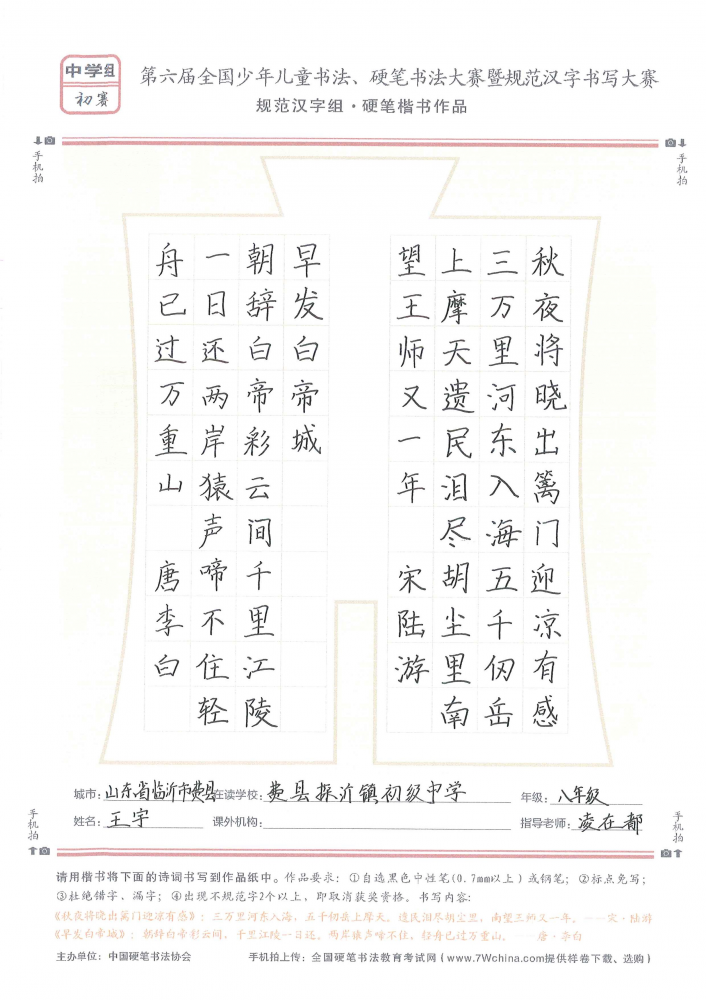 中学组
初赛
第六届全国少年儿童书法、硬笔书法大赛暨规范汉字书写大赛
规范汉字组·硬笔楷书作品
手机拍
手机拍
秋夜将晓出篱门迎凉有感
三万里河东入海五千仞岳
上摩天遗民泪尽胡尘里南
望王师又一年
宋陆游
早发白帝城
朝辞白帝彩云间千里江陵
一日还两岸猿声啼不住轻
舟已过万重山
唐李白
城市:山东省临沂市费县
在读学校:费县探沂镇初级中学
年级:八年级
姓名:王宇
课外机构:
指导老师:凌在都
手机拍
手机拍
请用楷书将下面的诗词书写到作品纸中。作品要求:①自选黑色中性笔(0.7mm以上)或钢笔;②标点免写;
③杜绝错字、漏字;④出现不规范字2个以上,即取消获奖资格。书写内容:
《秋夜将晓出篱门迎凉有感》:三万里河东入海,五千仞岳上摩天。遗民泪尽胡尘里,南望王师又一年。——宋·陆游
《早发白帝城》:朝辞白帝彩云间,千里江陵一日还。两岸猿声啼不住,轻舟已过万重山。——唐·李白
主办单位:中国硬笔书法协会
手机拍上传:全国硬笔书法教育考试网(www.7Wchina.com提供样卷下载、选购)